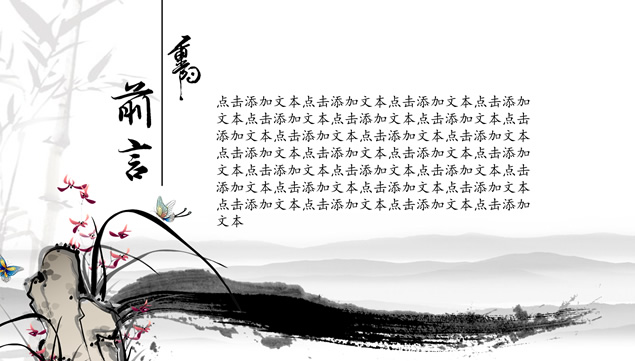 前言
点击添加文本点击添加文本点击添加文本点击添加
文本点击添加文本点击添加文本点击添加文本点击
添加文本点击添加文本点击添加文本点击添加文本
点击添加文本点击添加文本点击添加文本点击添加
文本点击添加文本点击添加文本点击添加文本点击
添加文本点击添加文本点击添加文本点击添加文本
点击添加文本点击添加文本点击添加文本点击添加
文本